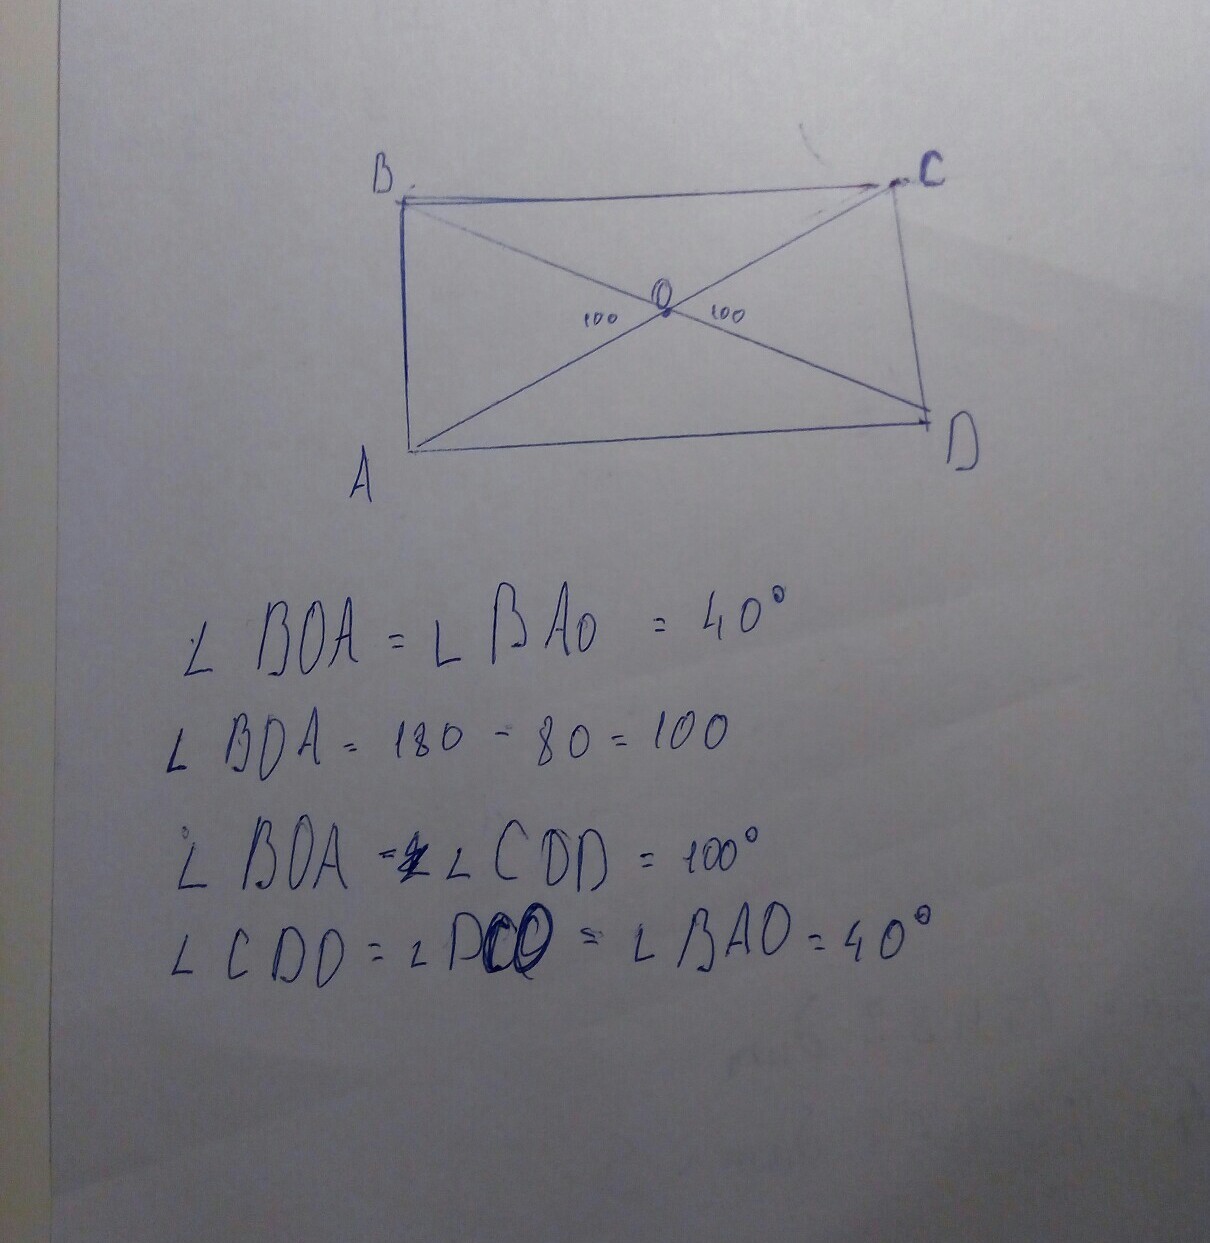 B C
O
100 100
A D
∠ BOA = ∠ BAO = 40°
∠ BOA = 180 - 80 = 100
∠ BOA = ∠ COD = 100°
∠ CDO = ∠ DCO = ∠ BAO = 40°